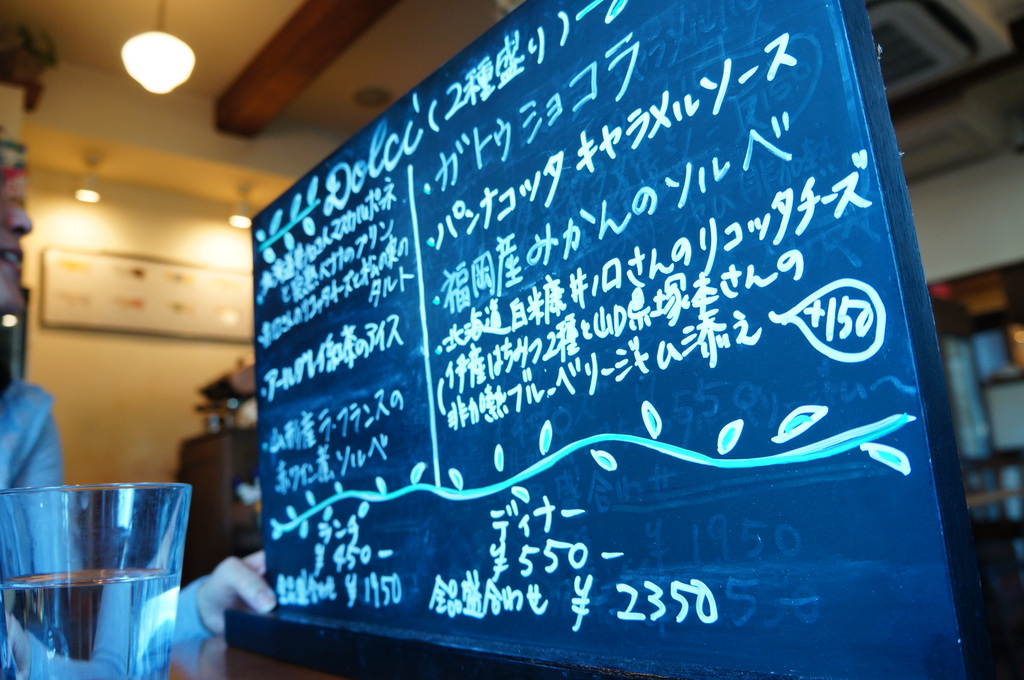 Dolci (2種盛り)
完熟バナナのプリン
タルト
・アールグレイ紅茶のアイス
・山形産ラ・フランスの
赤ワイン煮、ソルベ
・ガトウショコラ
・パンナコッタ キャラメルソース
・福岡産みかんのソルベ
・北海道白糠産井ノ口さんのリコッタチーズ
(伊産はちみつ2種と山口県塚本さんの
非加熱ブルーベリージャム添え
+150
ランチ
¥450-
全品盛合わせ ¥1950
ディナー
¥550-
全品盛合わせ ¥2350